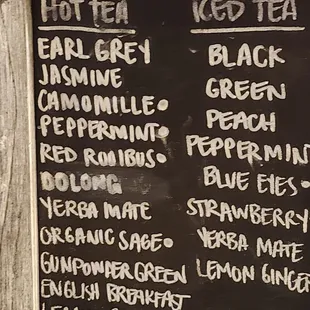 HOT TEA
EARL GREY
JASMINE
CAMOMILLE•
PEPPERMINT•
RED ROOIBUS•
OOLONG
YERBA MATE
ORGANIC SAGE•
GUNPOWDER GREEN
ENGLISH BREAKFAST
ICED TEA
BLACK
GREEN
PEACH
PEPPERMIN
BLUE EYES•
STRAWBERRY
YERBA MATE
LEMON GINGER